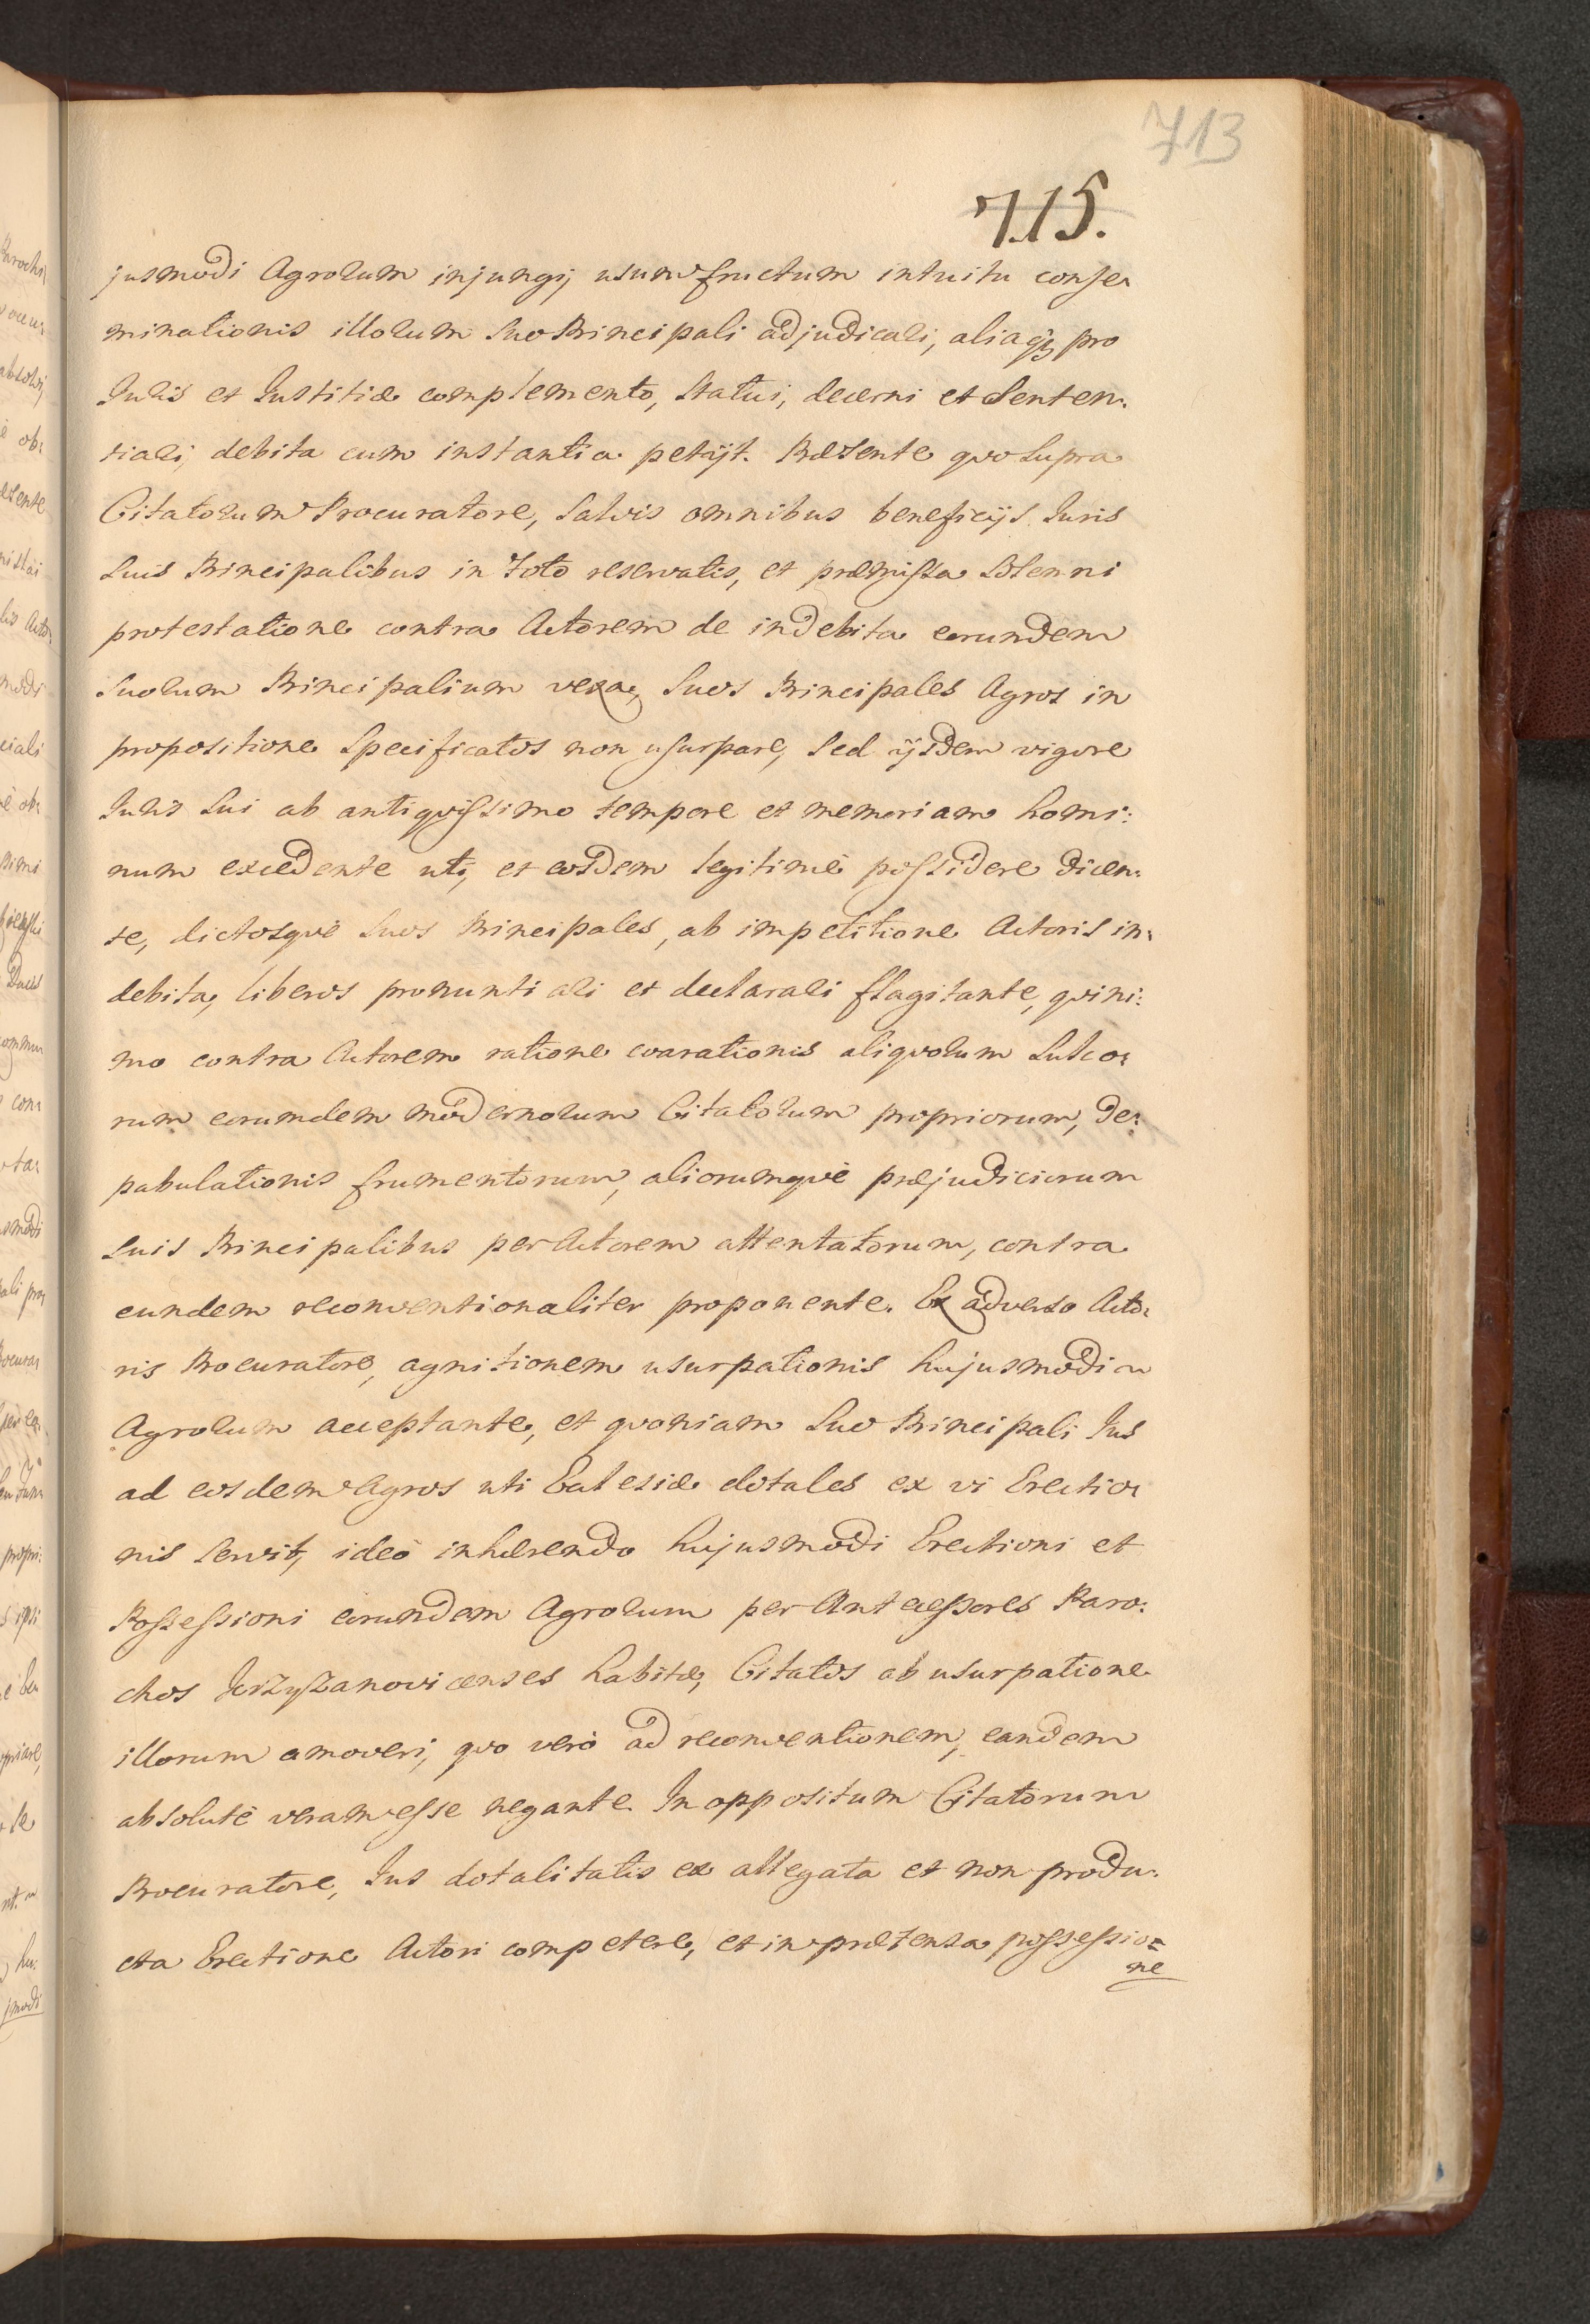 713
715.
jusmodi Agrorum injungi, usumfructum intuitu conse-
minationis illorum Suo Principali adjudicari, aliaq3 pro
Juris et Justitiæ complemento, Statui, decerni et Senten-
tiari, debita cum instantia petijt. Præsente quo Supra
Citatorum Procuratore, Salvis omnibus beneficijs Juris
Suis Principalibus in Toto reservatis, et præmissa Solenni
protestatione contra Actorem de indebita eorundem
Suorum Principalium vexa, Suos Principales Agros in
propositione Specificatos non usurpare, Sed ijsdem vigore
Juris Sui ab antiquissimo tempore et memoriam homi:
num excedente uti, et eosdem legitimè possidere dicen-
te, dictosquè Suos Principales, ab impetitione Actoris in-
debita, liberos pronuntiari et declarari flagitante, quini:
mo contra Actorem ratione coarationis aliquorum Sulco-
rum eorumdem modernorum Citatorum propriorum, de-
pabulationis frumentorum, aliorumquè præjudiciorum
Suis Principalibus per Actorem attentatorum, contra
eundem reconventionaliter proponente. Ex adverso Acto-
ris Procuratore, agnitionem usurpationis hujusmodi
Agrorum acceptante, et quoniam Suo Principali Jus
ad eosdem Agros uti Ecclesiæ dotales ex vi Erectio-
nis Servit, ideò inhærendo hujusmodi Erectioni et
Possessioni eorundem Agrorum per Antecessores Paro:
chos habitæ, Citatos ab usurpatione
illorum amoveri, quo verò ad reconventionem, eandem
absolutè veram esse negante. In oppositum Citatorum
Procuratore, Jus dotalitatis ex allegata et non produ-
cta Erectione Actori competere, et in prætensa possessio=
ne